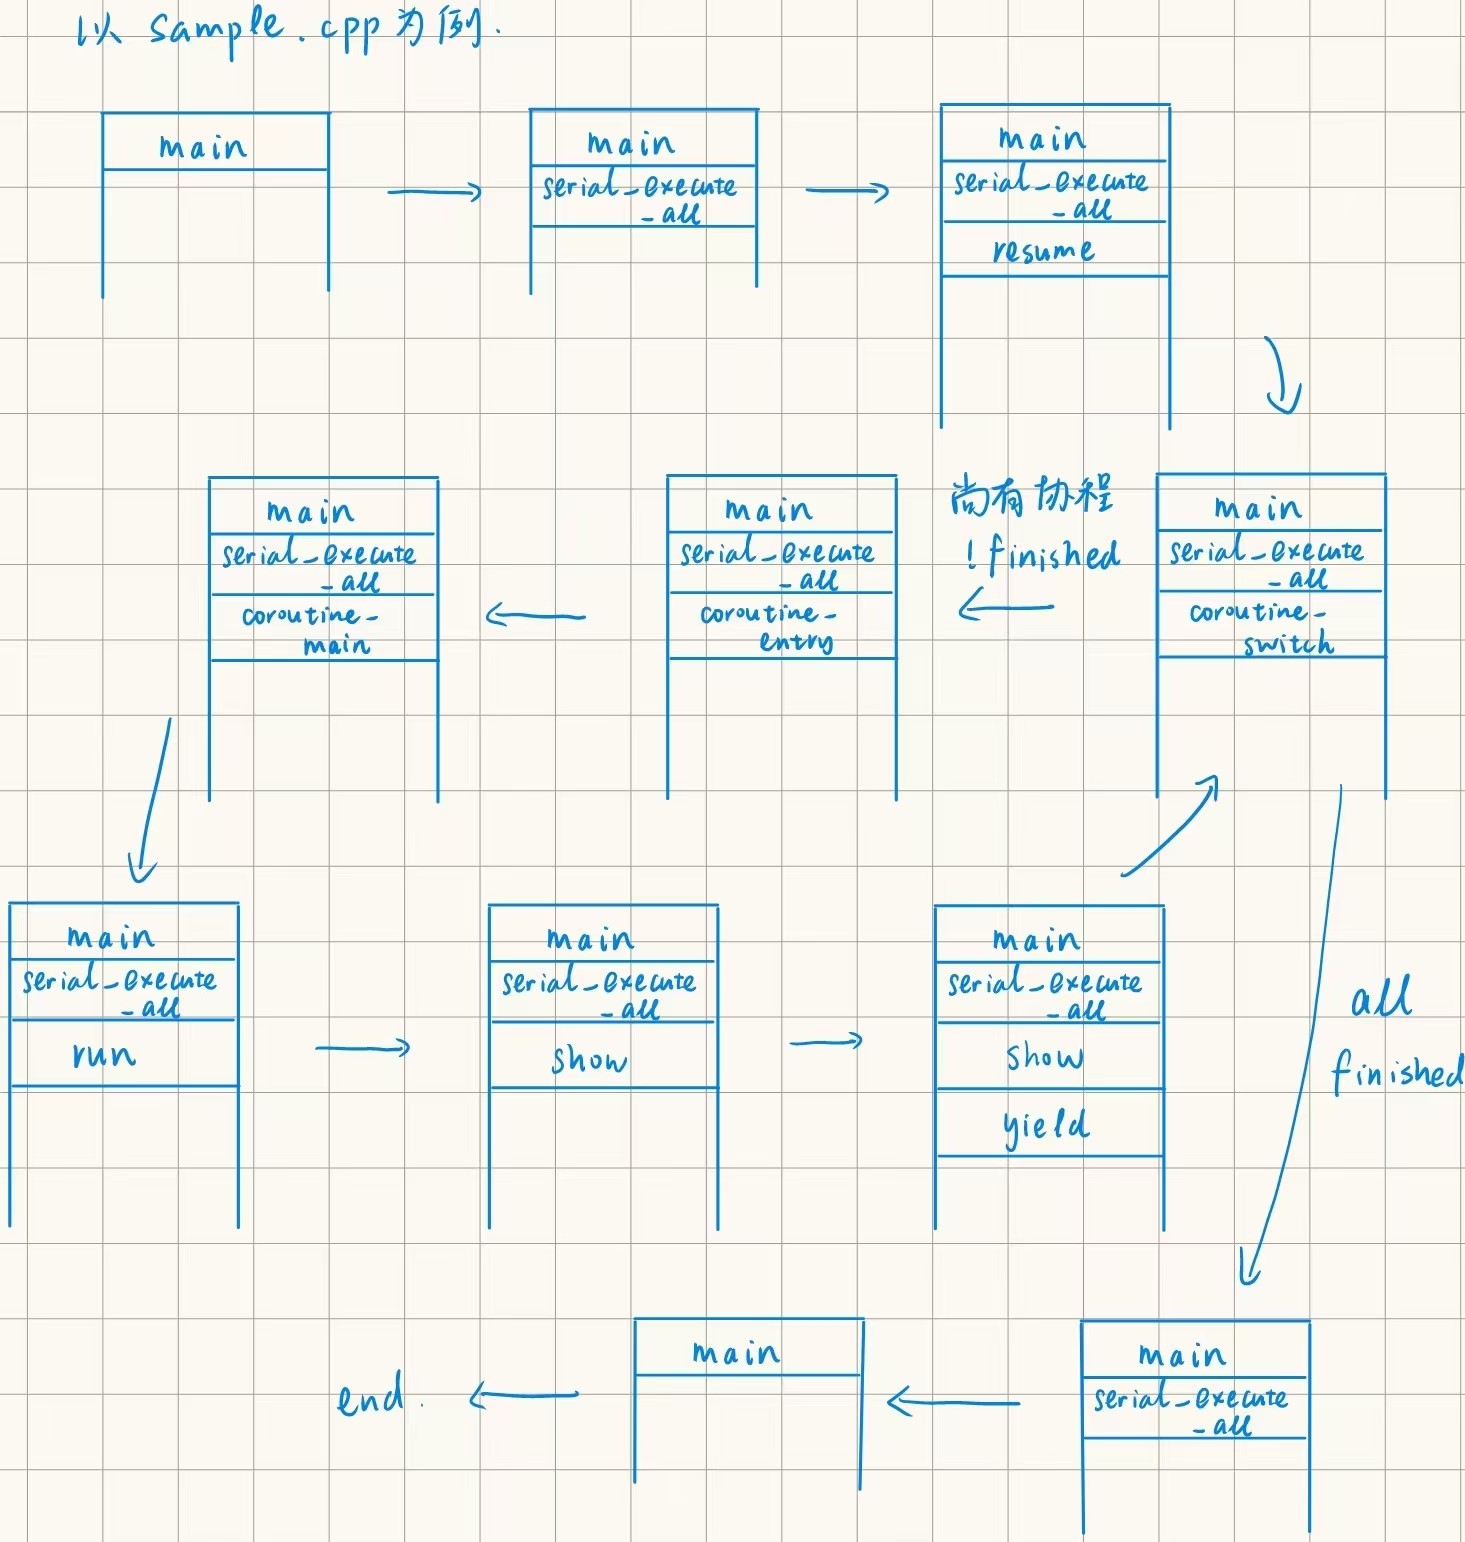 以 sample.cpp 为例.
main
main
serial_execute
_all
main
serial_execute
_all
resume
main
serial_execute
_all
coroutine_
main
main
serial_execute
_all
coroutine_
entry
尚有协程
!finished
main
serial_execute
_all
coroutine_
switch
main
serial_execute
_all
run
main
serial_execute
_all
show
main
serial_execute
_all
show
yield
all
finished
end.
main
main
serial_execute
_all